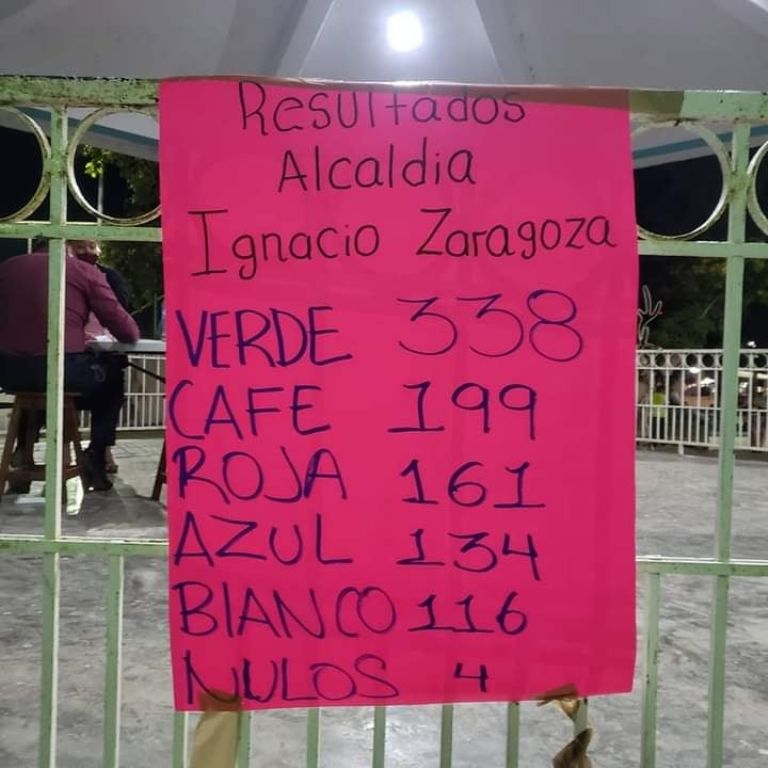 Resultados
Alcaldia
Ignacio Zaragoza
VERDE 338
CAFE 199
ROJA 161
AZUL 134
BLANCO 116
NULOS 4